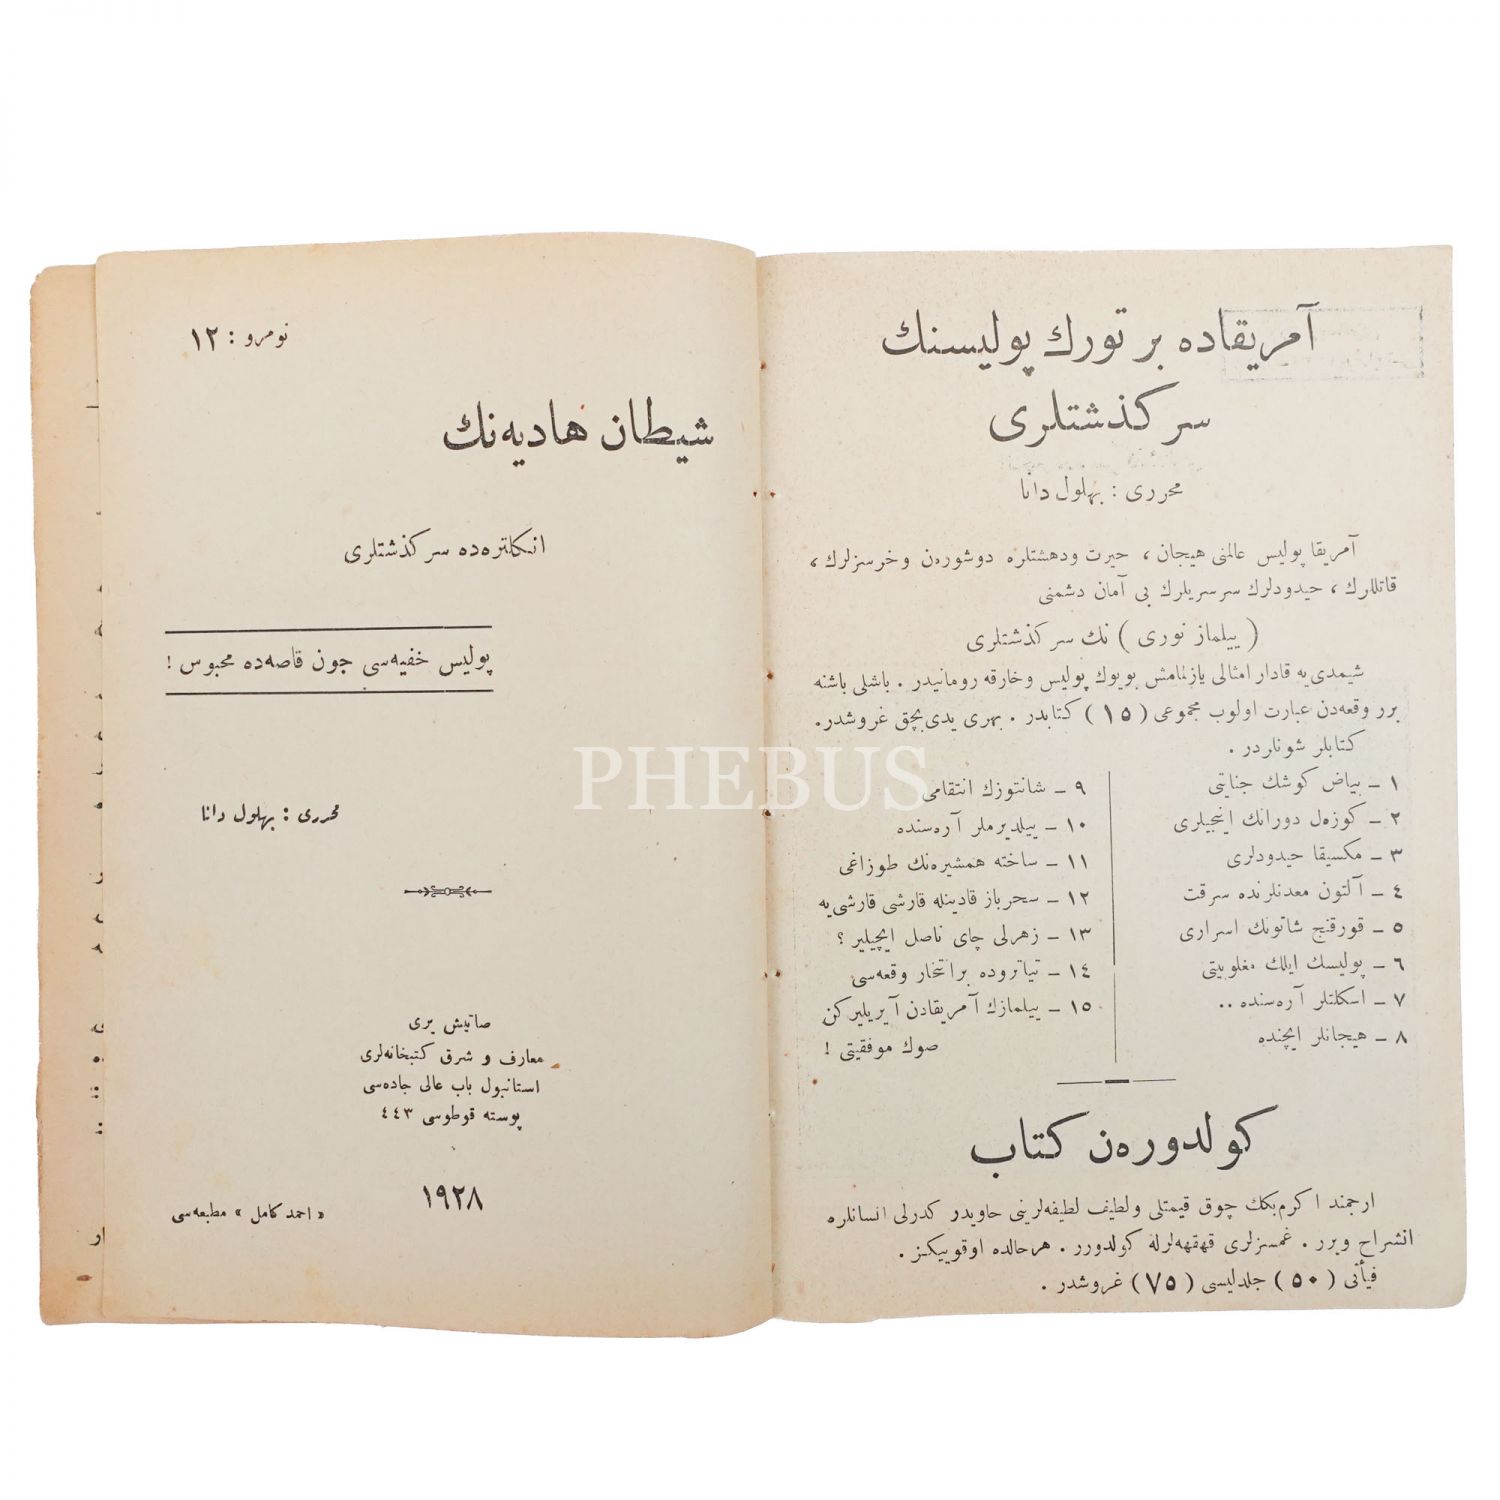 آمریقاده بر تورك پولیسنك
سرکذشتلری
محرری : بهلول دانا
آمریقا پولیس عالمنی هیجان ، حیرت ودهشتلره دوشورەن وخرسزلرك ،
قاتللرك ، حیدودلرك سرسریلرك بی آمان دشمنی
( ییلماز نوری ) نك سرکذشتلری
شیمدی‌یه قادار امثالی یازلمامش بویوك پولیس وخارقه رومانیدر . باشلی باشنه
برر وقعه‌دن عبارت اولوب مجموعی ( ١٥ ) کتابدر . بهری یدی بچق غروشدر.
کتابلر شوناردر .
١ – بیاض کوشك جنایتی
٢ – کوزه‌ل دورانك اینجیلری
٣ – مکسیقا حیدودلری
٤ – آلتون معدنلرنده سرقت
٥ – قورقنج شاتونك اسراری
٦ – پولیسك ایلك مغلوبیتی
٧ – اسکلتلر آره‌سنده ..
٨ – هیجانلر ایچنده
٩ – شانتوزك انتقامی
١٠ – ییلدیرملر آره‌سنده
١١ – ساخته همشیره‌نك طوزاغی
١٢ – سحرباز قادینله قارشی قارشی‌یه
١٣ – زهرلی چای ناصل ایچیلیر ؟
١٤ – تیاتروده بر انتخار وقعه‌سی
١٥ – ییلمازك آمریقادن آیریلیرکن
صوك موفقیتی !
کولدوره‌ن کتاب
ارجمند اکرم بکك چوق قیمتلی ولطیف لطیفه‌لرینی حاویدر کدرلی انسانلره
انشراح ویرر . غمسزلری قهقهه‌لرله کولدورر . هرحالده اوقوییکز .
فیأتی ( ٥٠ ) جلدلیسی ( ٧٥ ) غروشدر .
نومرو : ١٢
شیطان هادیه‌نك
انکلتره‌ده سرکذشتلری
پولیس خفیه‌سی جون قاصه‌ده محبوس !
محرری : بهلول دانا
صاتیش یری
معارف و شرق کتبخانه‌لری
استانبول باب عالی جاده‌سی
پوسته قوطوسی ٤٤٣
١٩٢٨
« احمد کامل » مطبعه‌سی
PHEBUS